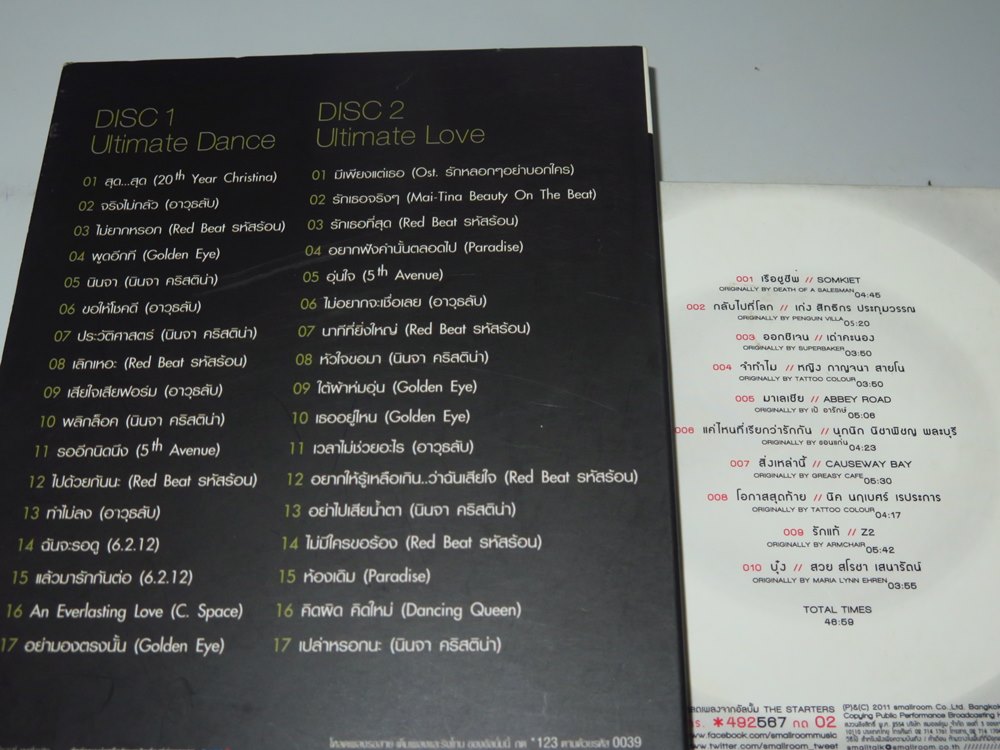 DISC 1
Ultimate Dance
01 สุด...สุด (20th Year Christina)
02 จริงไม่กลัว (อาวุธลับ)
03 ไม่ยากหรอก (Red Beat รหัสร้อน)
04 พูดอีกที (Golden Eye)
05 นินจา (นินจา คริสติน่า)
06 ขอให้โชคดี (อาวุธลับ)
07 ประวัติศาสตร์ (นินจา คริสติน่า)
08 เลิกเหอะ (Red Beat รหัสร้อน)
09 เสียใจเสียฟอร์ม (อาวุธลับ)
10 พลิกล็อค (นินจา คริสติน่า)
11 รออีกนิดนึง (5th Avenue)
12 ไปด้วยกันนะ (Red Beat รหัสร้อน)
13 ทำไม่ลง (อาวุธลับ)
14 ฉันจะรอดู (6.2.12)
15 แล้วมารักกันต่อ (6.2.12)
16 An Everlasting Love (C. Space)
17 อย่ามองตรงนั้น (Golden Eye)
DISC 2
Ultimate Love
01 มีเพียงแต่เธอ (Ost. รักหลอกๆอย่าบอกใคร)
02 รักเธอจริงๆ (Mai-Tina Beauty On The Beat)
03 รักเธอที่สุด (Red Beat รหัสร้อน)
04 อยากฟังคำนั้นตลอดไป (Paradise)
05 อุ่นใจ (5th Avenue)
06 ไม่อยากจะเชื่อเลย (อาวุธลับ)
07 นาทีที่ยิ่งใหญ่ (Red Beat รหัสร้อน)
08 หัวใจขอมา (นินจา คริสติน่า)
09 ใต้ผ้าห่มอุ่น (Golden Eye)
10 เธออยู่ไหน (Golden Eye)
11 เวลาไม่ช่วยอะไร (อาวุธลับ)
12 อยากให้รู้เหลือเกิน..ว่าฉันเสียใจ (Red Beat รหัสร้อน)
13 อย่าไปเสียน้ำตา (นินจา คริสติน่า)
14 ไม่มีใครขอร้อง (Red Beat รหัสร้อน)
15 ห้องเดิม (Paradise)
16 คิดผิด คิดใหม่ (Dancing Queen)
17 เปล่าหรอกนะ (นินจา คริสติน่า)
*123 ตามด้วยรหัส 0039
001 เรือชูชีพ // SOMKIET
ORIGINALLY BY DEATH OF A SALESMAN 04:45
002 กลับไปที่โลก // เก่ง สิทธิกร ประทุมวรรณ
ORIGINALLY BY PENGUIN VILLA 05:20
003 ออกซิเจน // เต่าคะนอง
ORIGINALLY BY SUPERBAKER 03:50
004 จำทำไม // หญิง กาญจนา สายโน
ORIGINALLY BY TATTOO COLOUR 03:50
005 มาเลเซีย // ABBEY ROAD
ORIGINALLY BY เป้ อารักษ์ 05:06
006 แค่ไหนที่เรียกว่ารักกัน // นุกนิก นิชาพิชญ พละบุรี
ORIGINALLY BY ขอนแก่น 04:23
007 สิ่งเหล่านี้ // CAUSEWAY BAY
ORIGINALLY BY GREASY CAFE 05:30
008 โอกาสสุดท้าย // นิค นฤเบศร์ เรประการ
ORIGINALLY BY TATTOO COLOUR 04:17
009 รักแท้ // Z2
ORIGINALLY BY ARMCHAIR 05:42
010 บุ๋ง // สวย สโรชา เสนารัตน์
ORIGINALLY BY MARIA LYNN EHREN 03:55
TOTAL TIMES
46:59
เพลงจากอัลบั้ม THE STARTERS
*492567 กด 02
www.facebook.com/smallroommusic
www.twitter.com/smallroom_tweet
(P)&(C) 2011 smallroom Co.,Ltd. Bangkok
Copying Public Performance Broadcasting